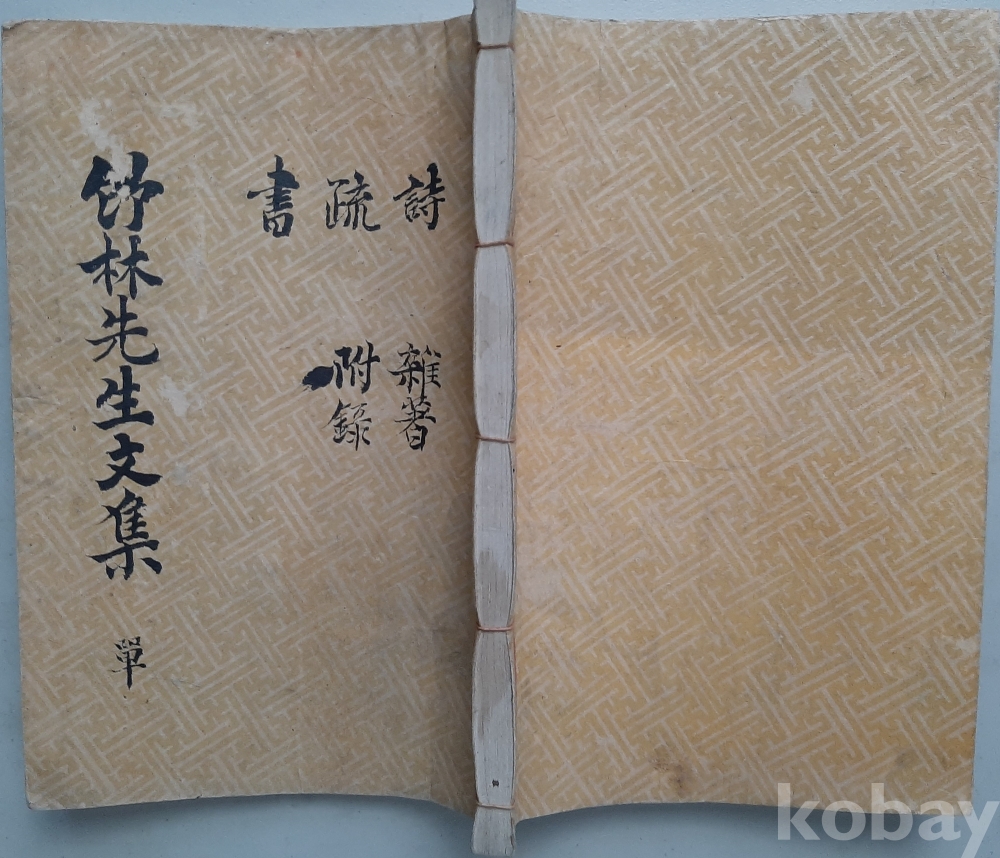 林先生文集 單
詩 雜著
疏 附錄
書
kobay